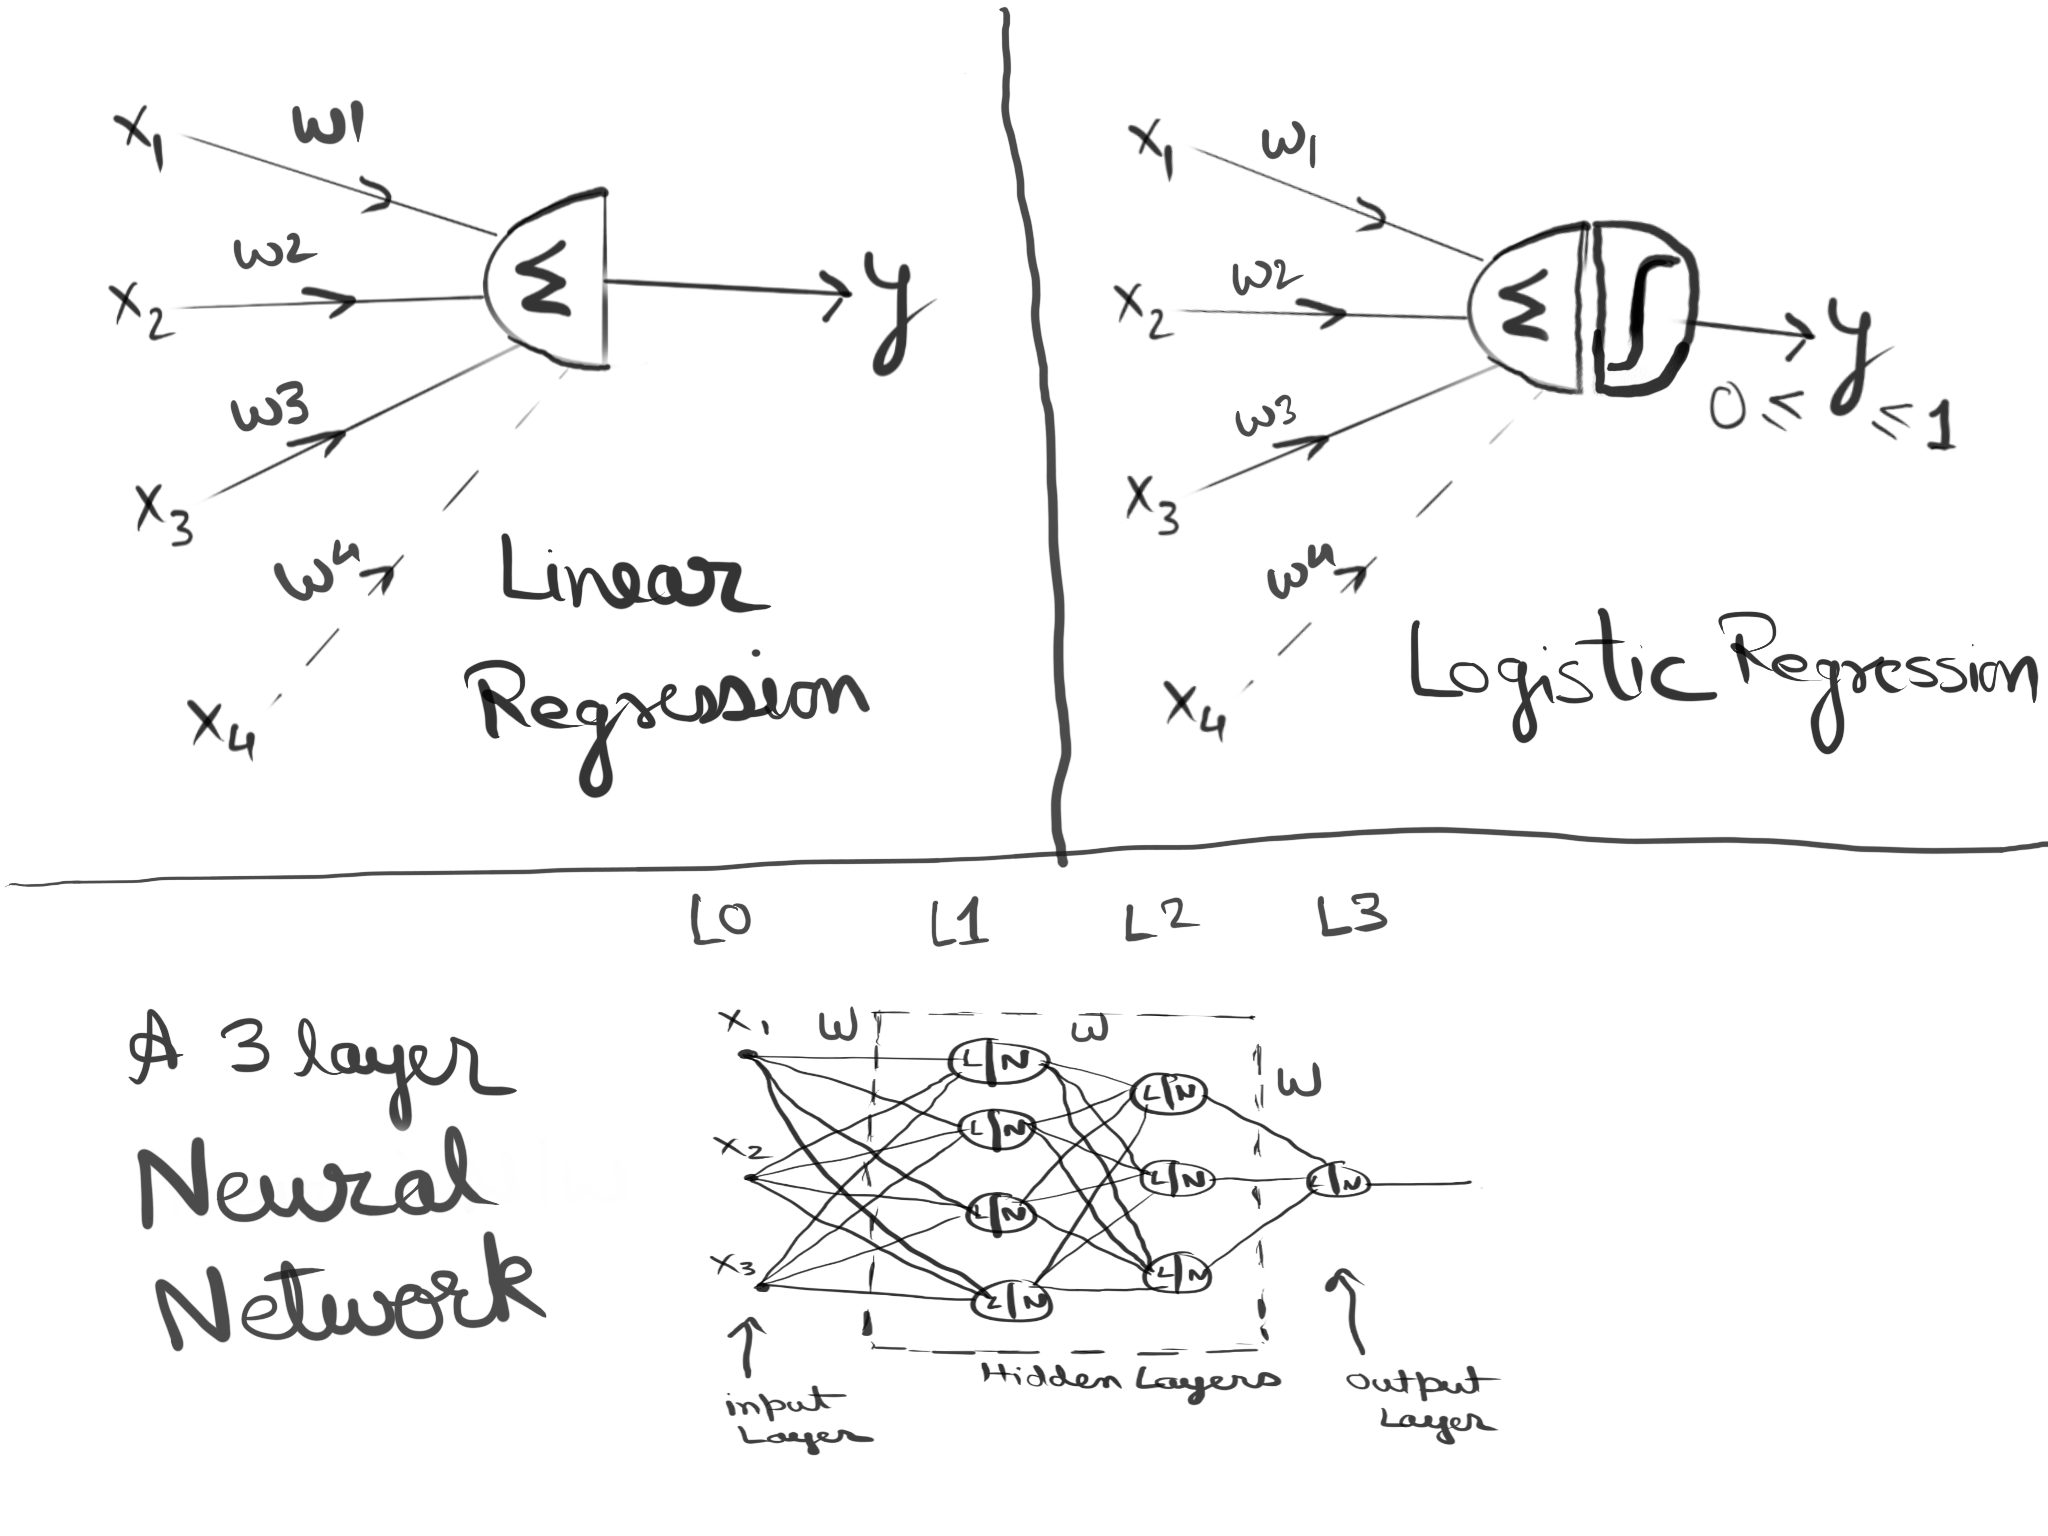 x1
w1
x2
w2
Σ
y
x3
w3
w4
x4
Linear
Regression
x1
w1
x2
w2
Σ
y
0 ≤ y ≤ 1
x3
w3
w4
x4
Logistic Regression
L0 L1 L2 L3
A 3 layer
Neural
Network
x1 W W W
x2
x3
L|N L|N L|N L|N
L|N L|N L|N
L|N
Hidden Layers
input
Layer
output
Layer